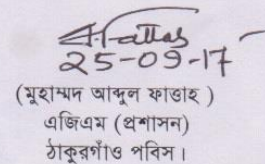 25-09-17
(মুহাম্মদ আব্দুল ফাত্তাহ )
এজিএম (প্রশাসন)
ঠাকুরগাঁও পবিস।